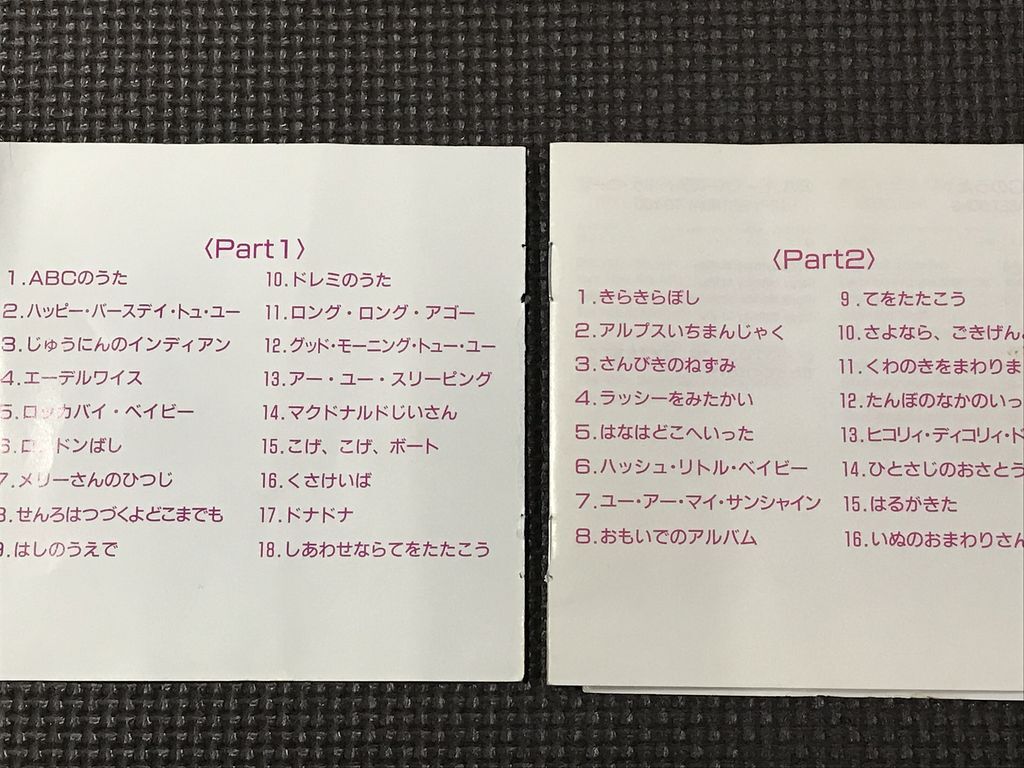 〈Part1〉
1.ABCのうた
2.ハッピー・バースデイ・トュ・ユー
3.じゅうにんのインディアン
4.エーデルワイス
5.ロッカバイ・ベイビー
6.ロンドンばし
7.メリーさんのひつじ
8.せんろはつづくよどこまでも
9.はしのうえで
10.ドレミのうた
11.ロング・ロング・アゴー
12.グッド・モーニング・トュー・ユー
13.アー・ユー・スリーピング
14.マクドナルドじいさん
15.こげ、こげ、ボート
16.くさけいば
17.ドナドナ
18.しあわせならてをたたこう
〈Part2〉
1.きらきらぼし
2.アルプスいちまんじゃく
3.さんびきのねずみ
4.ラッシーをみたかい
5.はなはどこへいった
6.ハッシュ・リトル・ベイビー
7.ユー・アー・マイ・サンシャイン
8.おもいでのアルバム
9.てをたたこう
10.さよなら、ごきげん
11.くわのきをまわりま
12.たんぼのなかのいっ
13.ヒコリィ・ディコリィ・ド
14.ひとさじのおさとう
15.はるがきた
16.いぬのおまわりさん